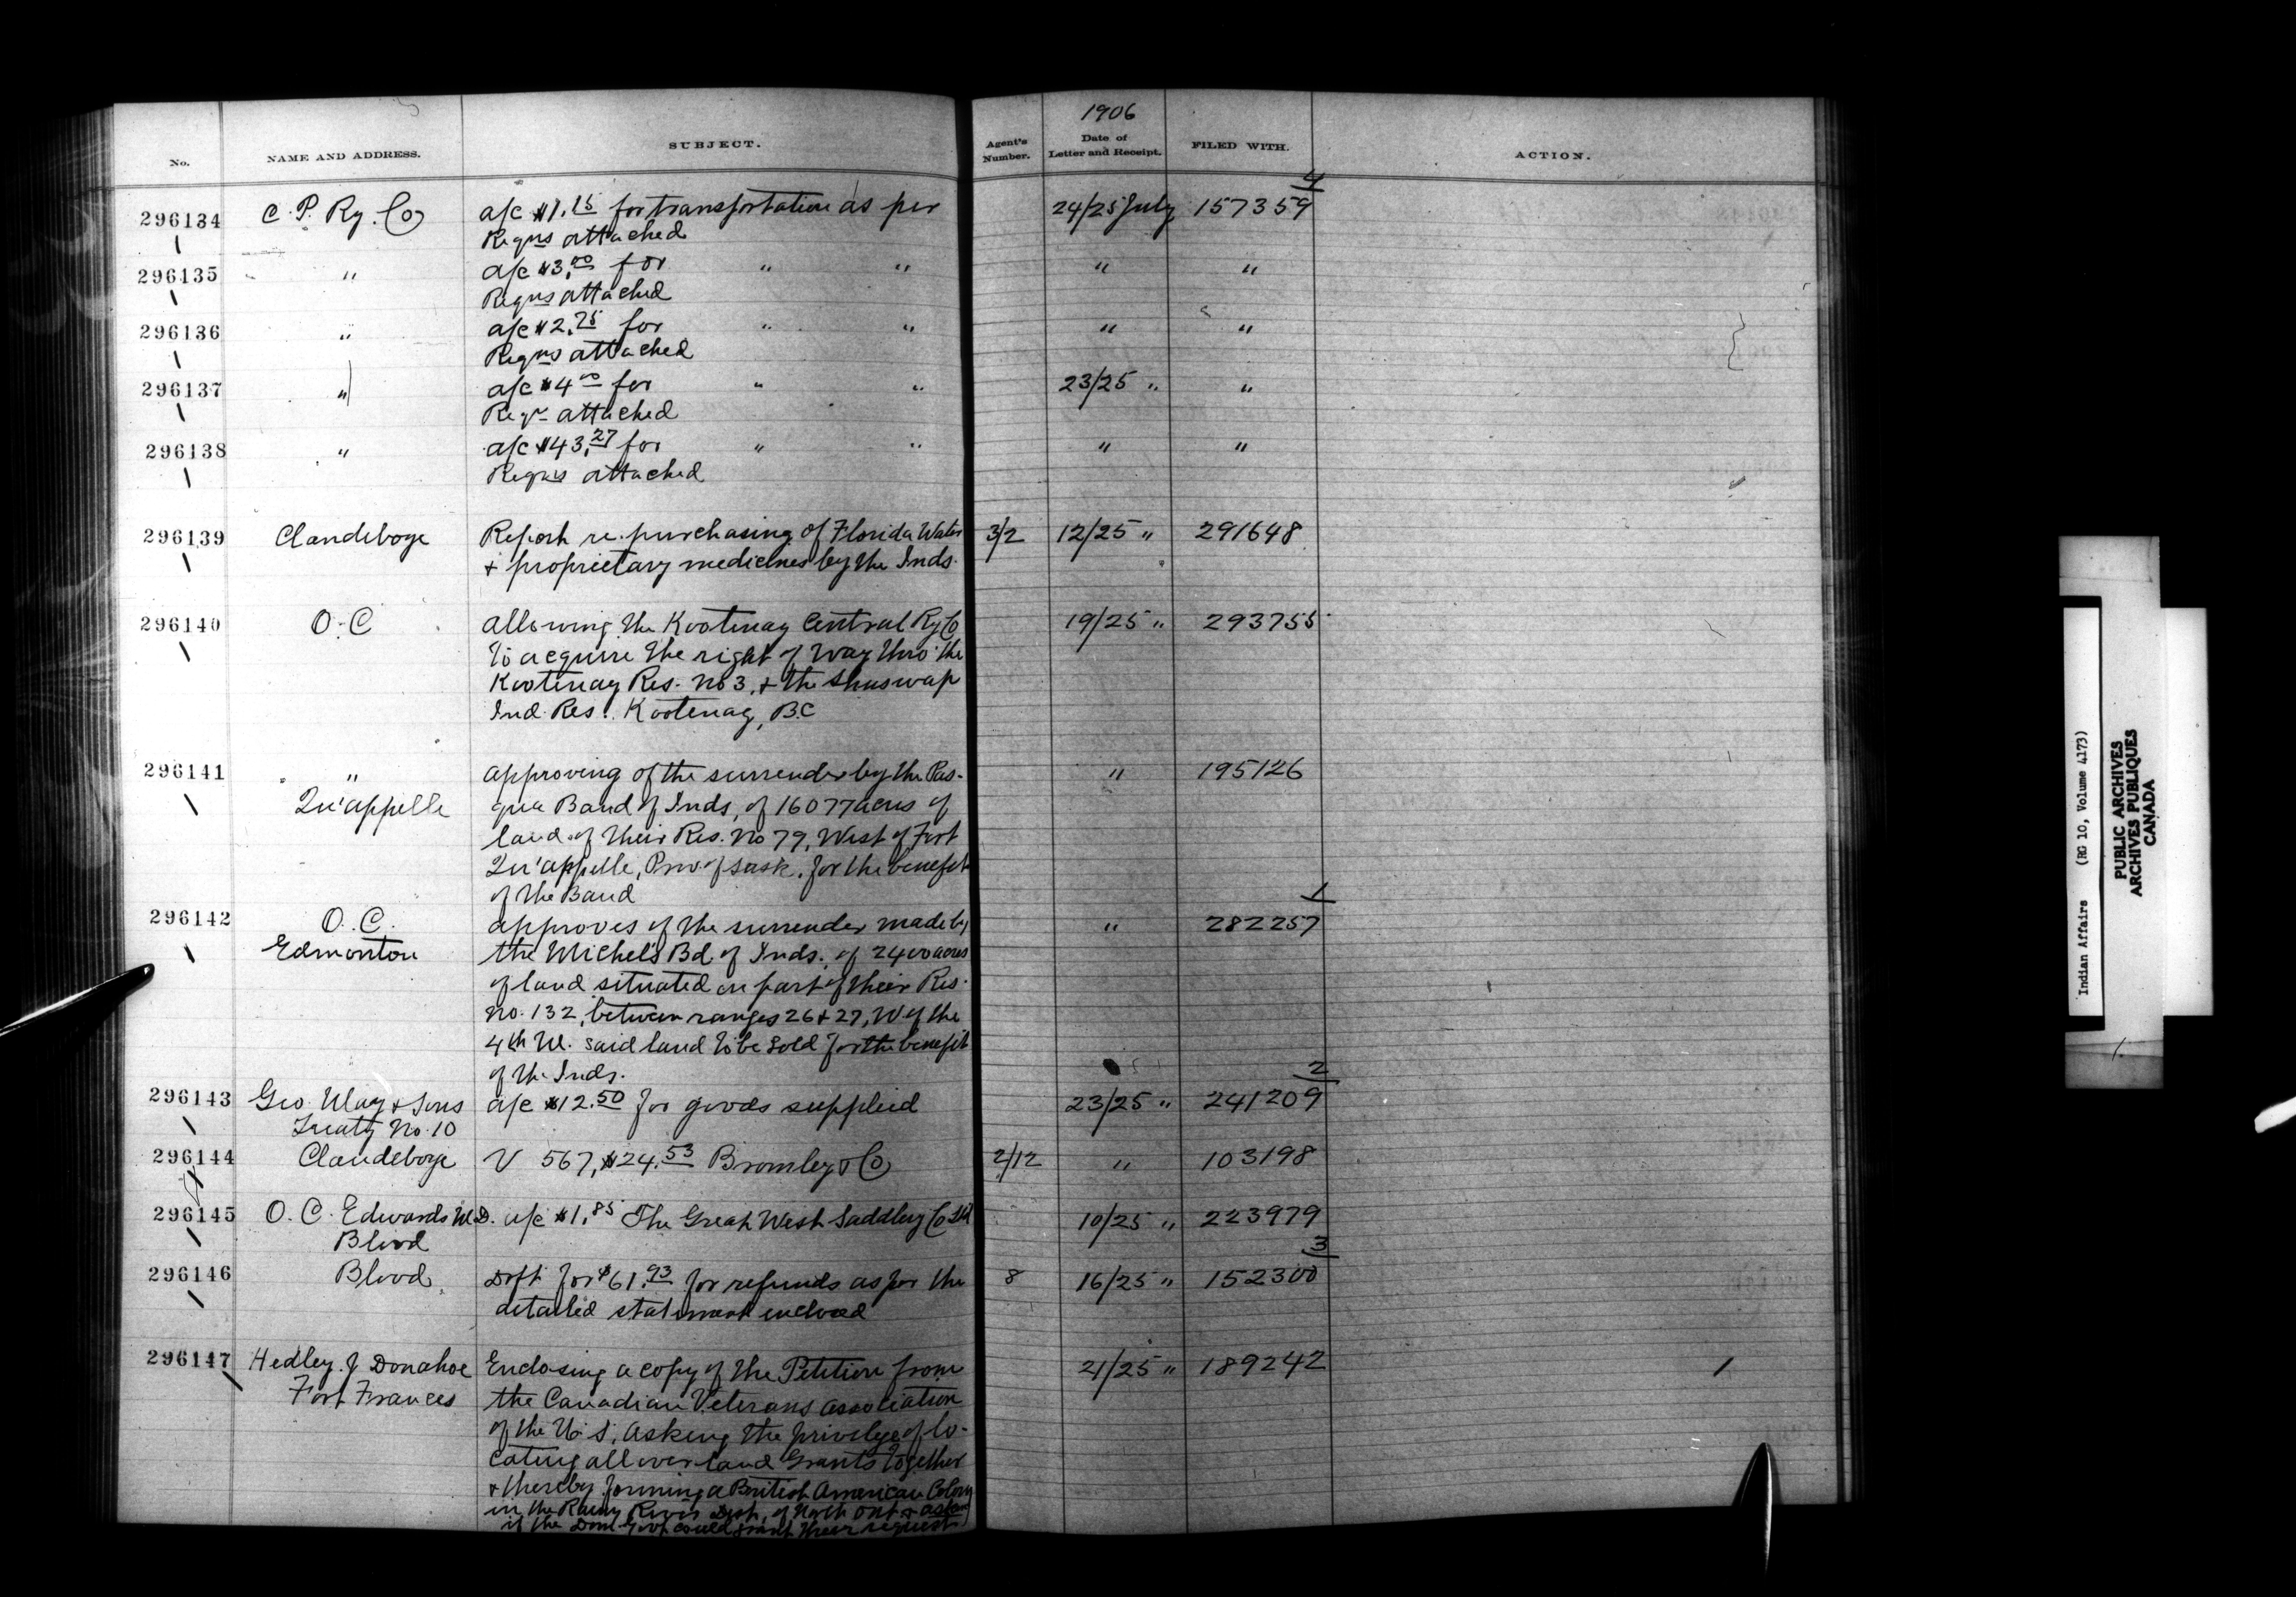 1906
No.
NAME AND ADDRESS.
SUBJECT.
Agent's Number.
Date of Letter and Receipt.
FILED WITH.
ACTION.
4
296134 C. P. Ry. Co a/c $1.15 for transportation as per 24/25 July 157359
Reqns attached
296135 " a/c $3.00 for " " " "
Reqns attached
296136 " a/c $2.75 for " " " "
Reqns attached
296137 " a/c $4.00 for " " 23/25 " "
Reqn attached
296138 " a/c $43.27 for " " " "
Reqns attached
296139 Clandeboye Report re. purchasing of Florida Water 3/2 12/25 " 291648
+ proprietary medicines by the Inds.
296140 O.C allowing the Kootenay Central Ry Co 19/25 " 293755
to acquire the right of way thro' the
Kootenay Res. No 3, + the Shuswap
Ind. Res. Kootenay, B.C
296141 " approving of the surrender by the Pas- " 195126
Qu'appelle qua Band of Inds, of 16077 acres of
land of their Res. No 79, West of Fort
Qu'appelle, Prov of Sask. for the benefit
of the Band
1
296142 O. C. approves of the surrender made by " 282257
Edmonton the Michel's Bd. of Inds. of 2400 acres
of land situated on part of their Res.
No. 132, between ranges 26 + 27, W. of the
4th M. said land to be sold for the benefit
of the Inds.
2
296143 Geo. May + Sons a/c $12.50 for goods supplied 23/25 " 241209
Treaty No. 10
296144 Clandeboye V 567, $24.53 Bromley + Co 2/12 " 103198
296145 O. C. Edwards M.D. a/c $1.85 The Great West Saddlery Co Ltd 10/25 " 223979
Blood
3
296146 Blood Dft for $61.93 for refunds as per the 8 16/25 " 152300
detailed statement enclosed
296147 Hedley. J Donahoe Enclosing a copy of the Petition from 21/25 " 189242
Fort Frances the Canadian Veterans association
of the U.S. asking the privilege of lo-
cating all over land Grants together
+ thereby forming a British American Colony
in the Rainy River Dist. of North Ont +
if the Dom. Govt could grant their request
Indian Affairs (RG 10, Volume 4173)
PUBLIC ARCHIVES
ARCHIVES PUBLIQUES
CANADA